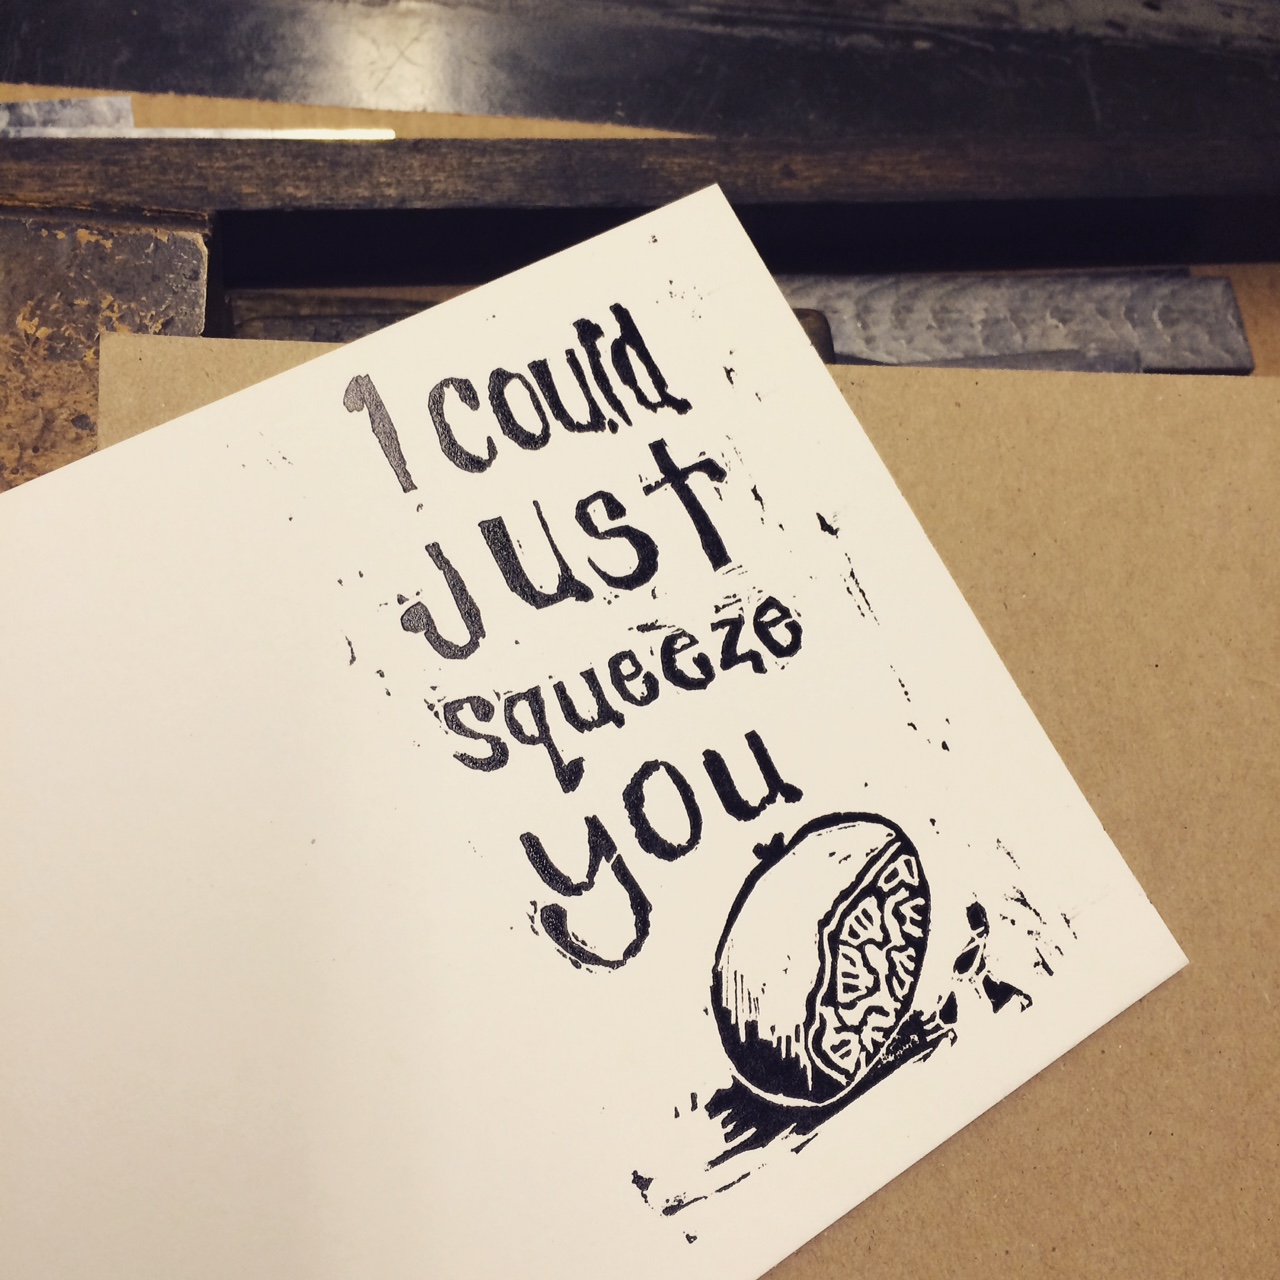 I could
Just
squeeze
you